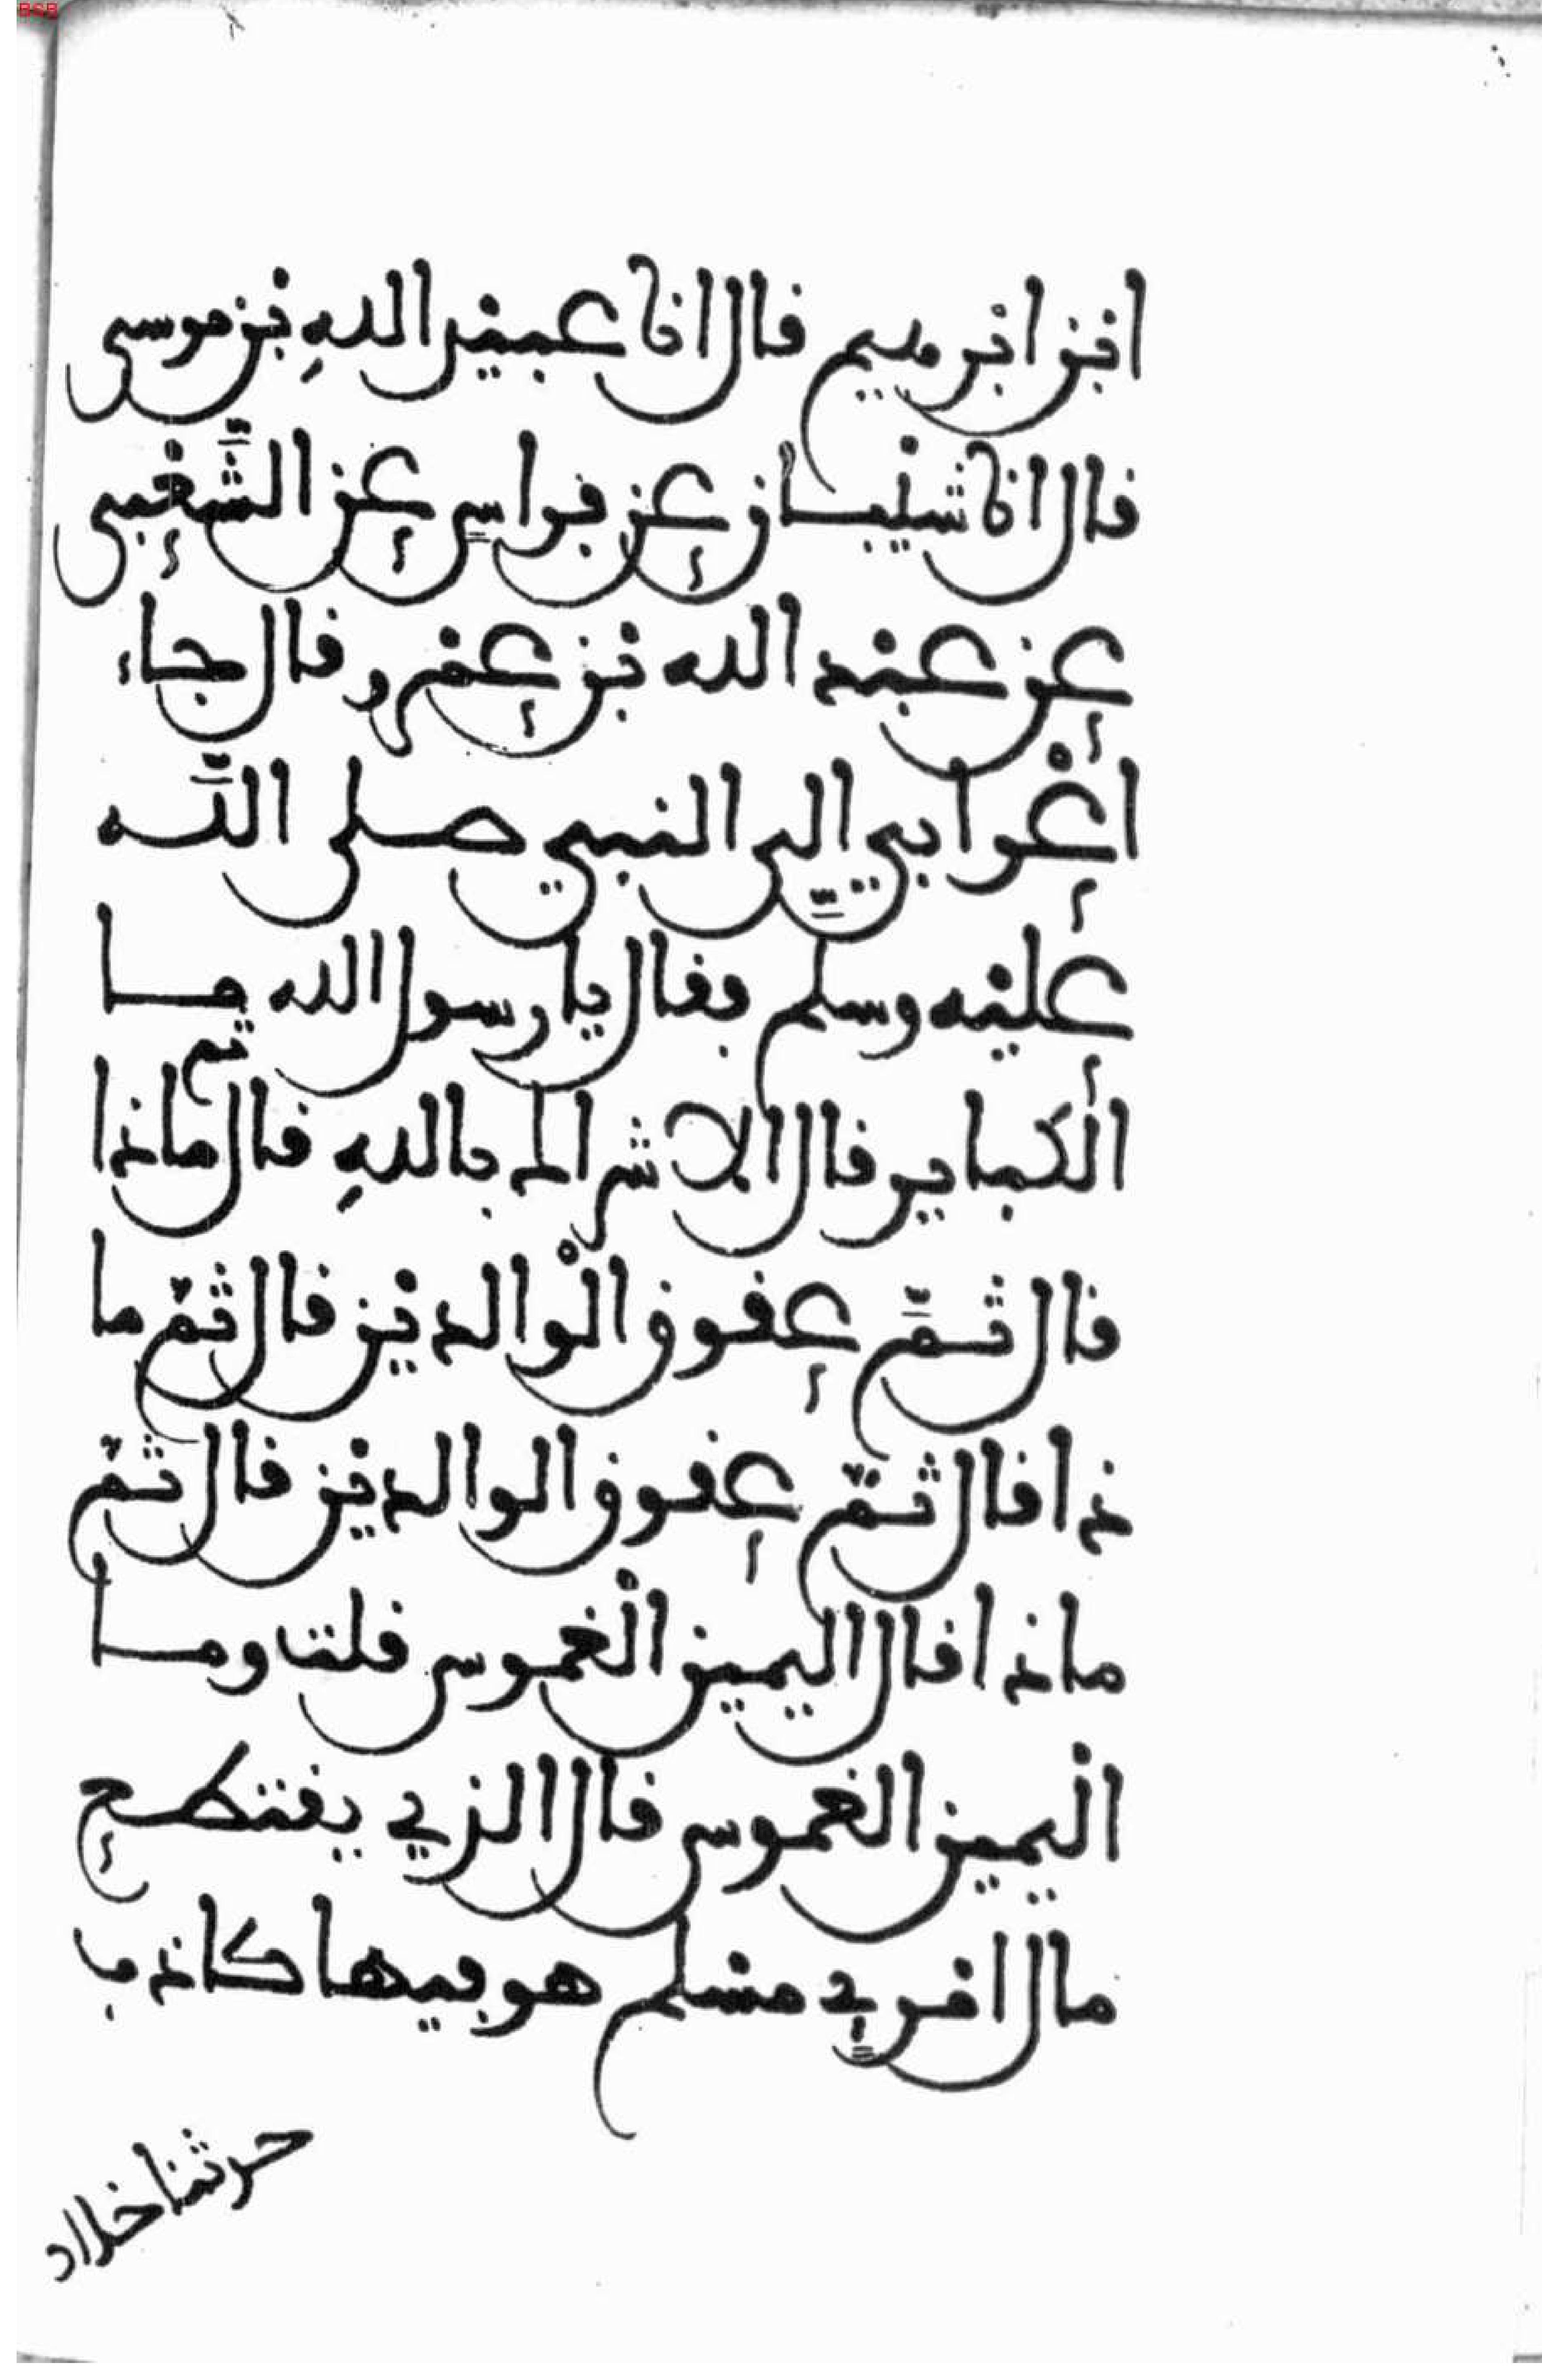 ابن ابرهيم قال انا عبيد الله بن موسى
قال انا شيبان عن فراسٍ عن الشَّعْبي
عن عبد الله بن عمرو قال جاء
أعْرابي الى النبي صلى اللَّه
عليه وسلم فقال يا رسول الله ما
الكباير قال الاشراك باللهِ قال ثم ماذا
قال ثمَّ عقوق الْوالدين قال ثمّ ما
ذا قال ثمّ عقوق الوالدين قال ثمّ
ماذا قال اليمين الْغموس قلت وما
الْيمين الغموس قال الذي يقتطع
مال امرىٍ مسلم هو فيها كاذب
حدثنا خلاد